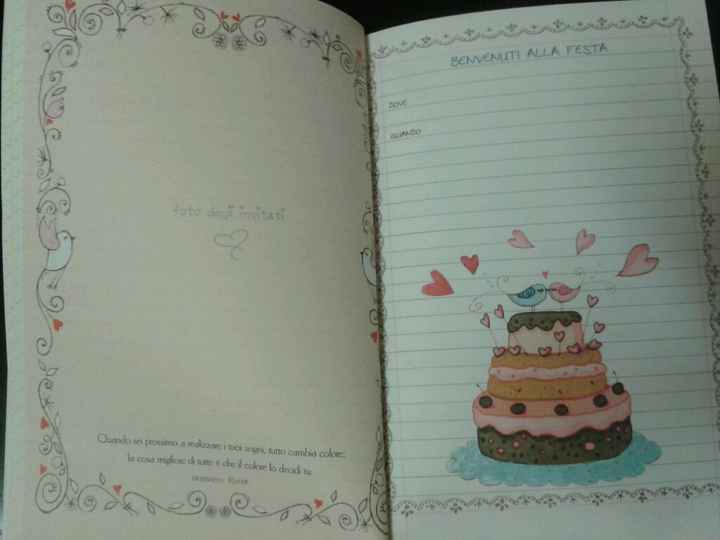 foto degli invitati
Quando sei prossimo a realizzare i tuoi sogni, tutto cambia colore;
la cosa migliore di tutte è che il colore lo decidi tu.
BENVENUTI ALLA FESTA
DOVE
QUANDO